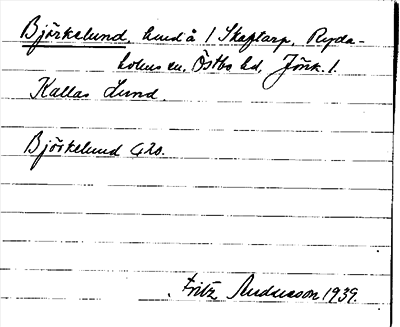 Björkelund, hmd å 1 Skaftarp, Ryda-
holms sn, Östbo hd, Jönk. l.
Kallas Lund.
Björkelund G20.
Fritz Andersson 1939.